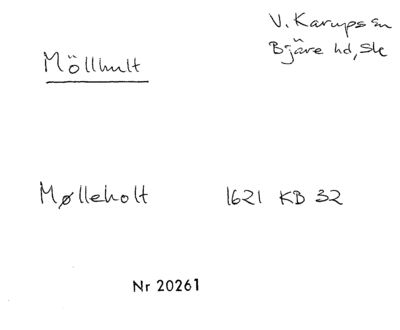 V. Karups sn
Bjäre hd, Sk
Möllhult
Mølleholt 1621 KB 32
Nr 20261